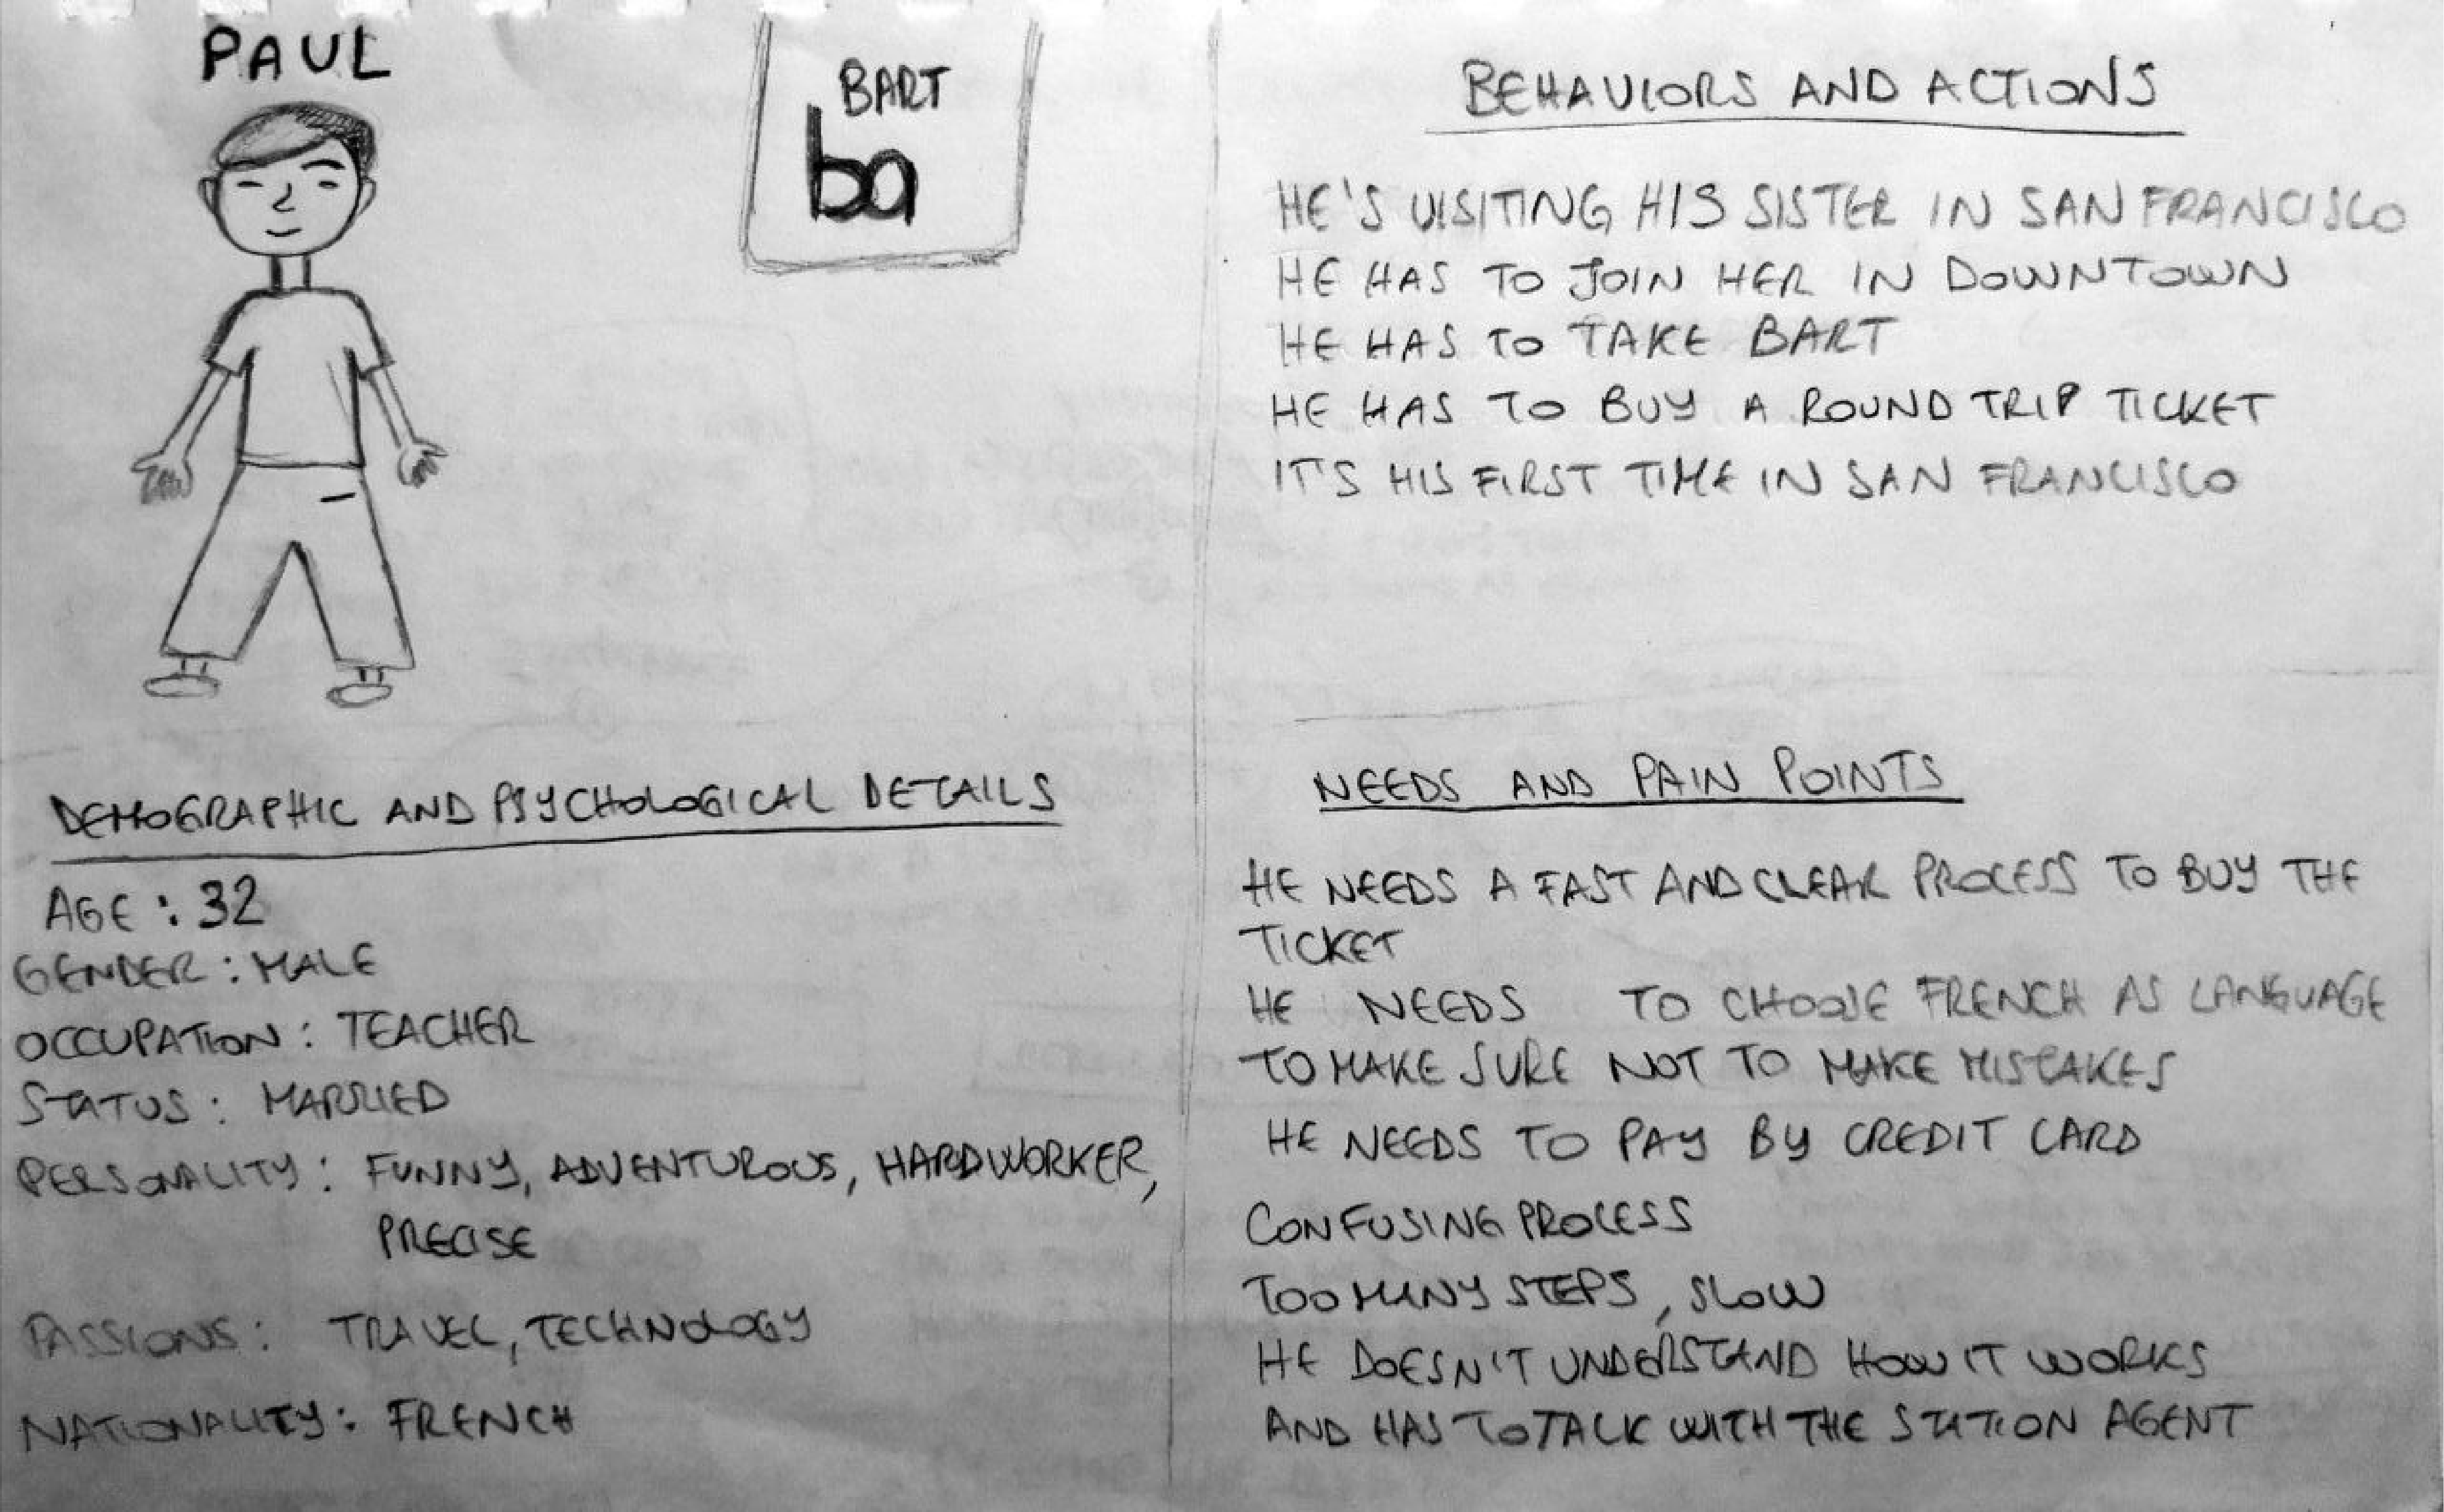 PAUL
BART
ba
DEMOGRAPHIC AND PSYCHOLOGICAL DETAILS
AGE : 32
GENDER : MALE
OCCUPATION : TEACHER
STATUS : MARRIED
PERSONALITY : FUNNY, ADVENTUROUS, HARDWORKER,
PRECISE
PASSIONS : TRAVEL, TECHNOLOGY
NATIONALITY : FRENCH
BEHAVIORS AND ACTIONS
HE'S VISITING HIS SISTER IN SAN FRANCISCO
HE HAS TO JOIN HER IN DOWNTOWN
HE HAS TO TAKE BART
HE HAS TO BUY A ROUND TRIP TICKET
IT'S HIS FIRST TIME IN SAN FRANCISCO
NEEDS AND PAIN POINTS
HE NEEDS A FAST AND CLEAR PROCESS TO BUY THE
TICKET
HE NEEDS TO CHOOSE FRENCH AS LANGUAGE
TO MAKE SURE NOT TO MAKE MISTAKES
HE NEEDS TO PAY BY CREDIT CARD
CONFUSING PROCESS
TOO MANY STEPS, SLOW
HE DOESN'T UNDERSTAND HOW IT WORKS
AND HAS TO TALK WITH THE STATION AGENT